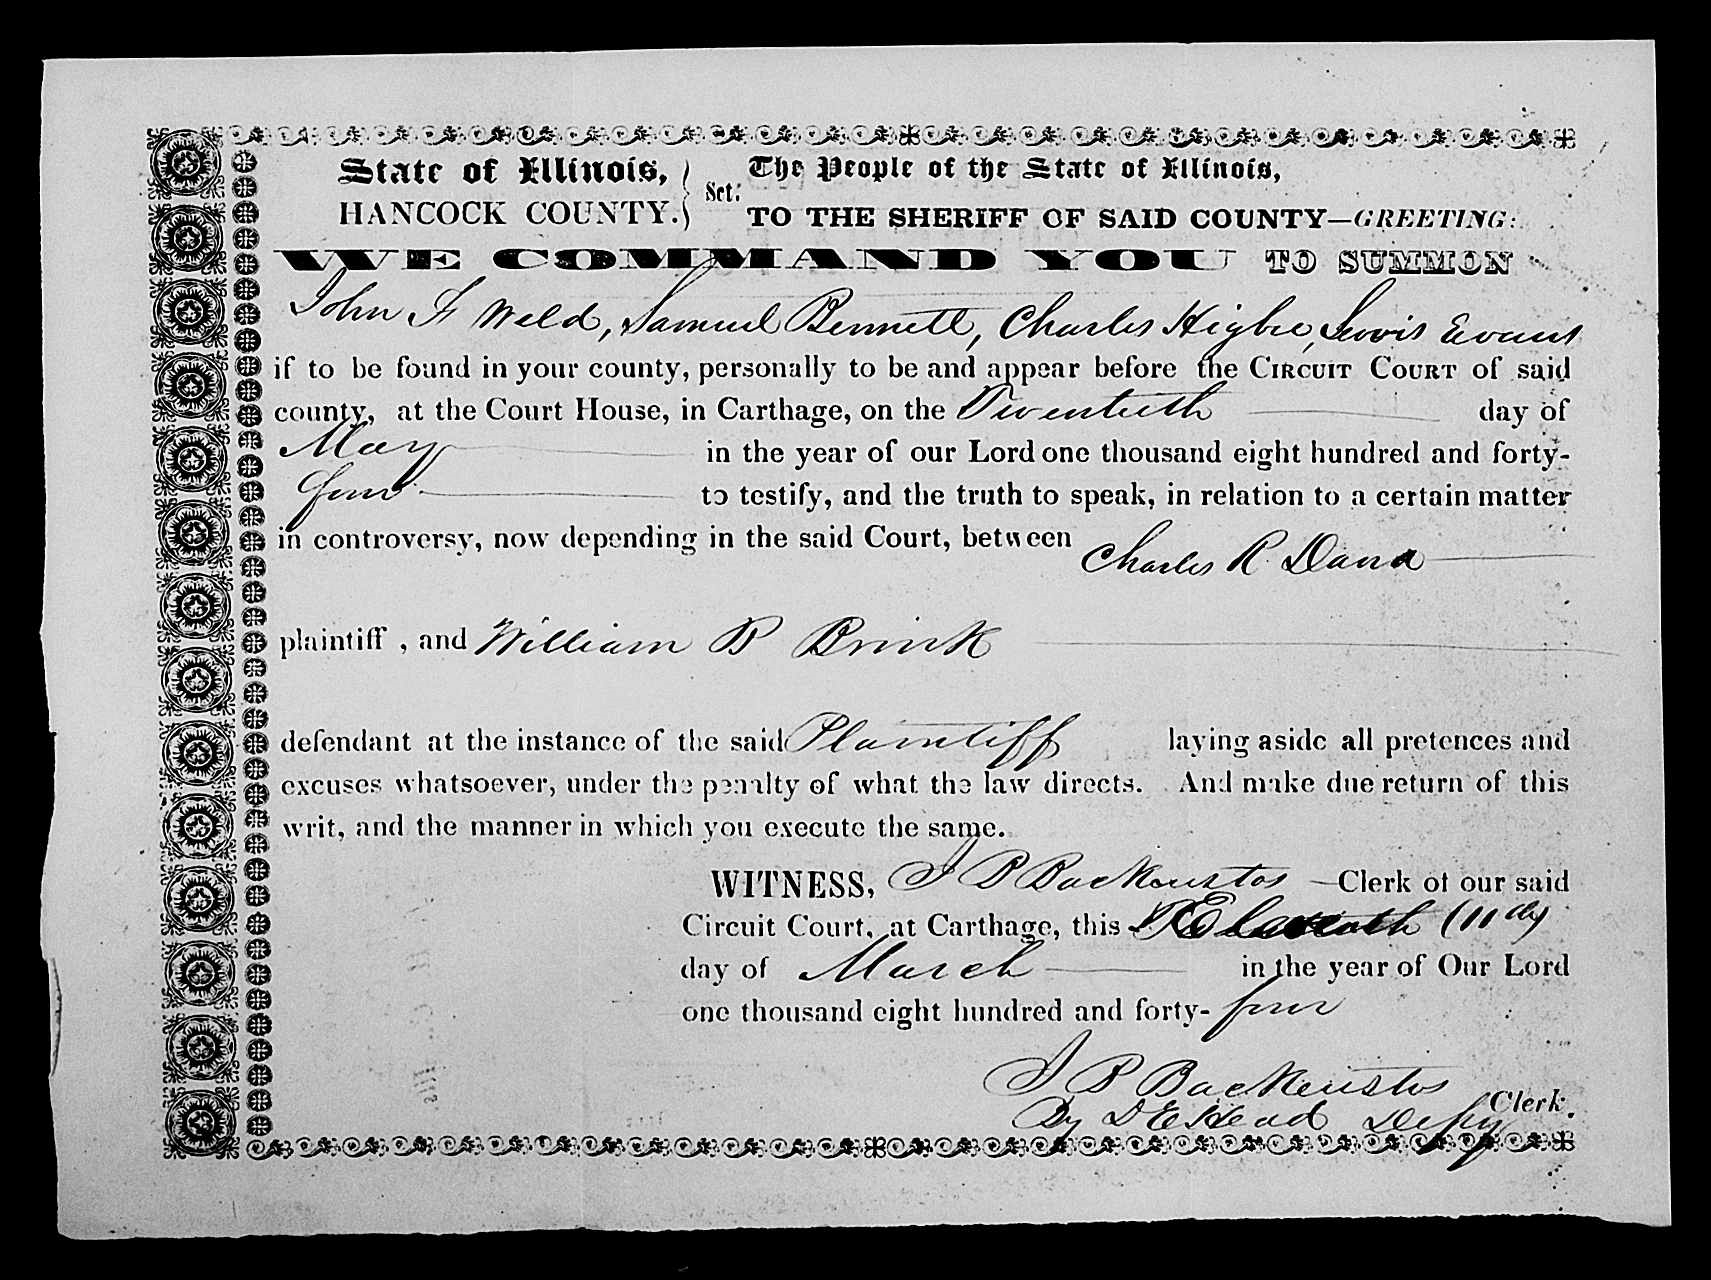 State of Illinois, } Sct: The People of the State of Illinois,
HANCOCK COUNTY. TO THE SHERIFF OF SAID COUNTY—GREETING:
WE COMMAND YOU TO SUMMON
John F Weld, Samuel Bennett, Charles Higbee, Lewis Evans
if to be found in your county, personally to be and appear before the CIRCUIT COURT of said
county, at the Court House, in Carthage, on the Twentieth day of
May in the year of our Lord one thousand eight hundred and forty-
four to testify, and the truth to speak, in relation to a certain matter
in controversy, now depending in the said Court, between Charles R Dana
plaintiff , and William B Brink
defendant at the instance of the said Plaintiff laying aside all pretences and
excuses whatsoever, under the penalty of what the law directs. And make due return of this
writ, and the manner in which you execute the same.
WITNESS, J B Backenstos Clerk of our said
Circuit Court, at Carthage, this (11th)
day of March in the year of Our Lord
one thousand eight hundred and forty- four
J B Backenstos
Clerk.
By D E Head Depy